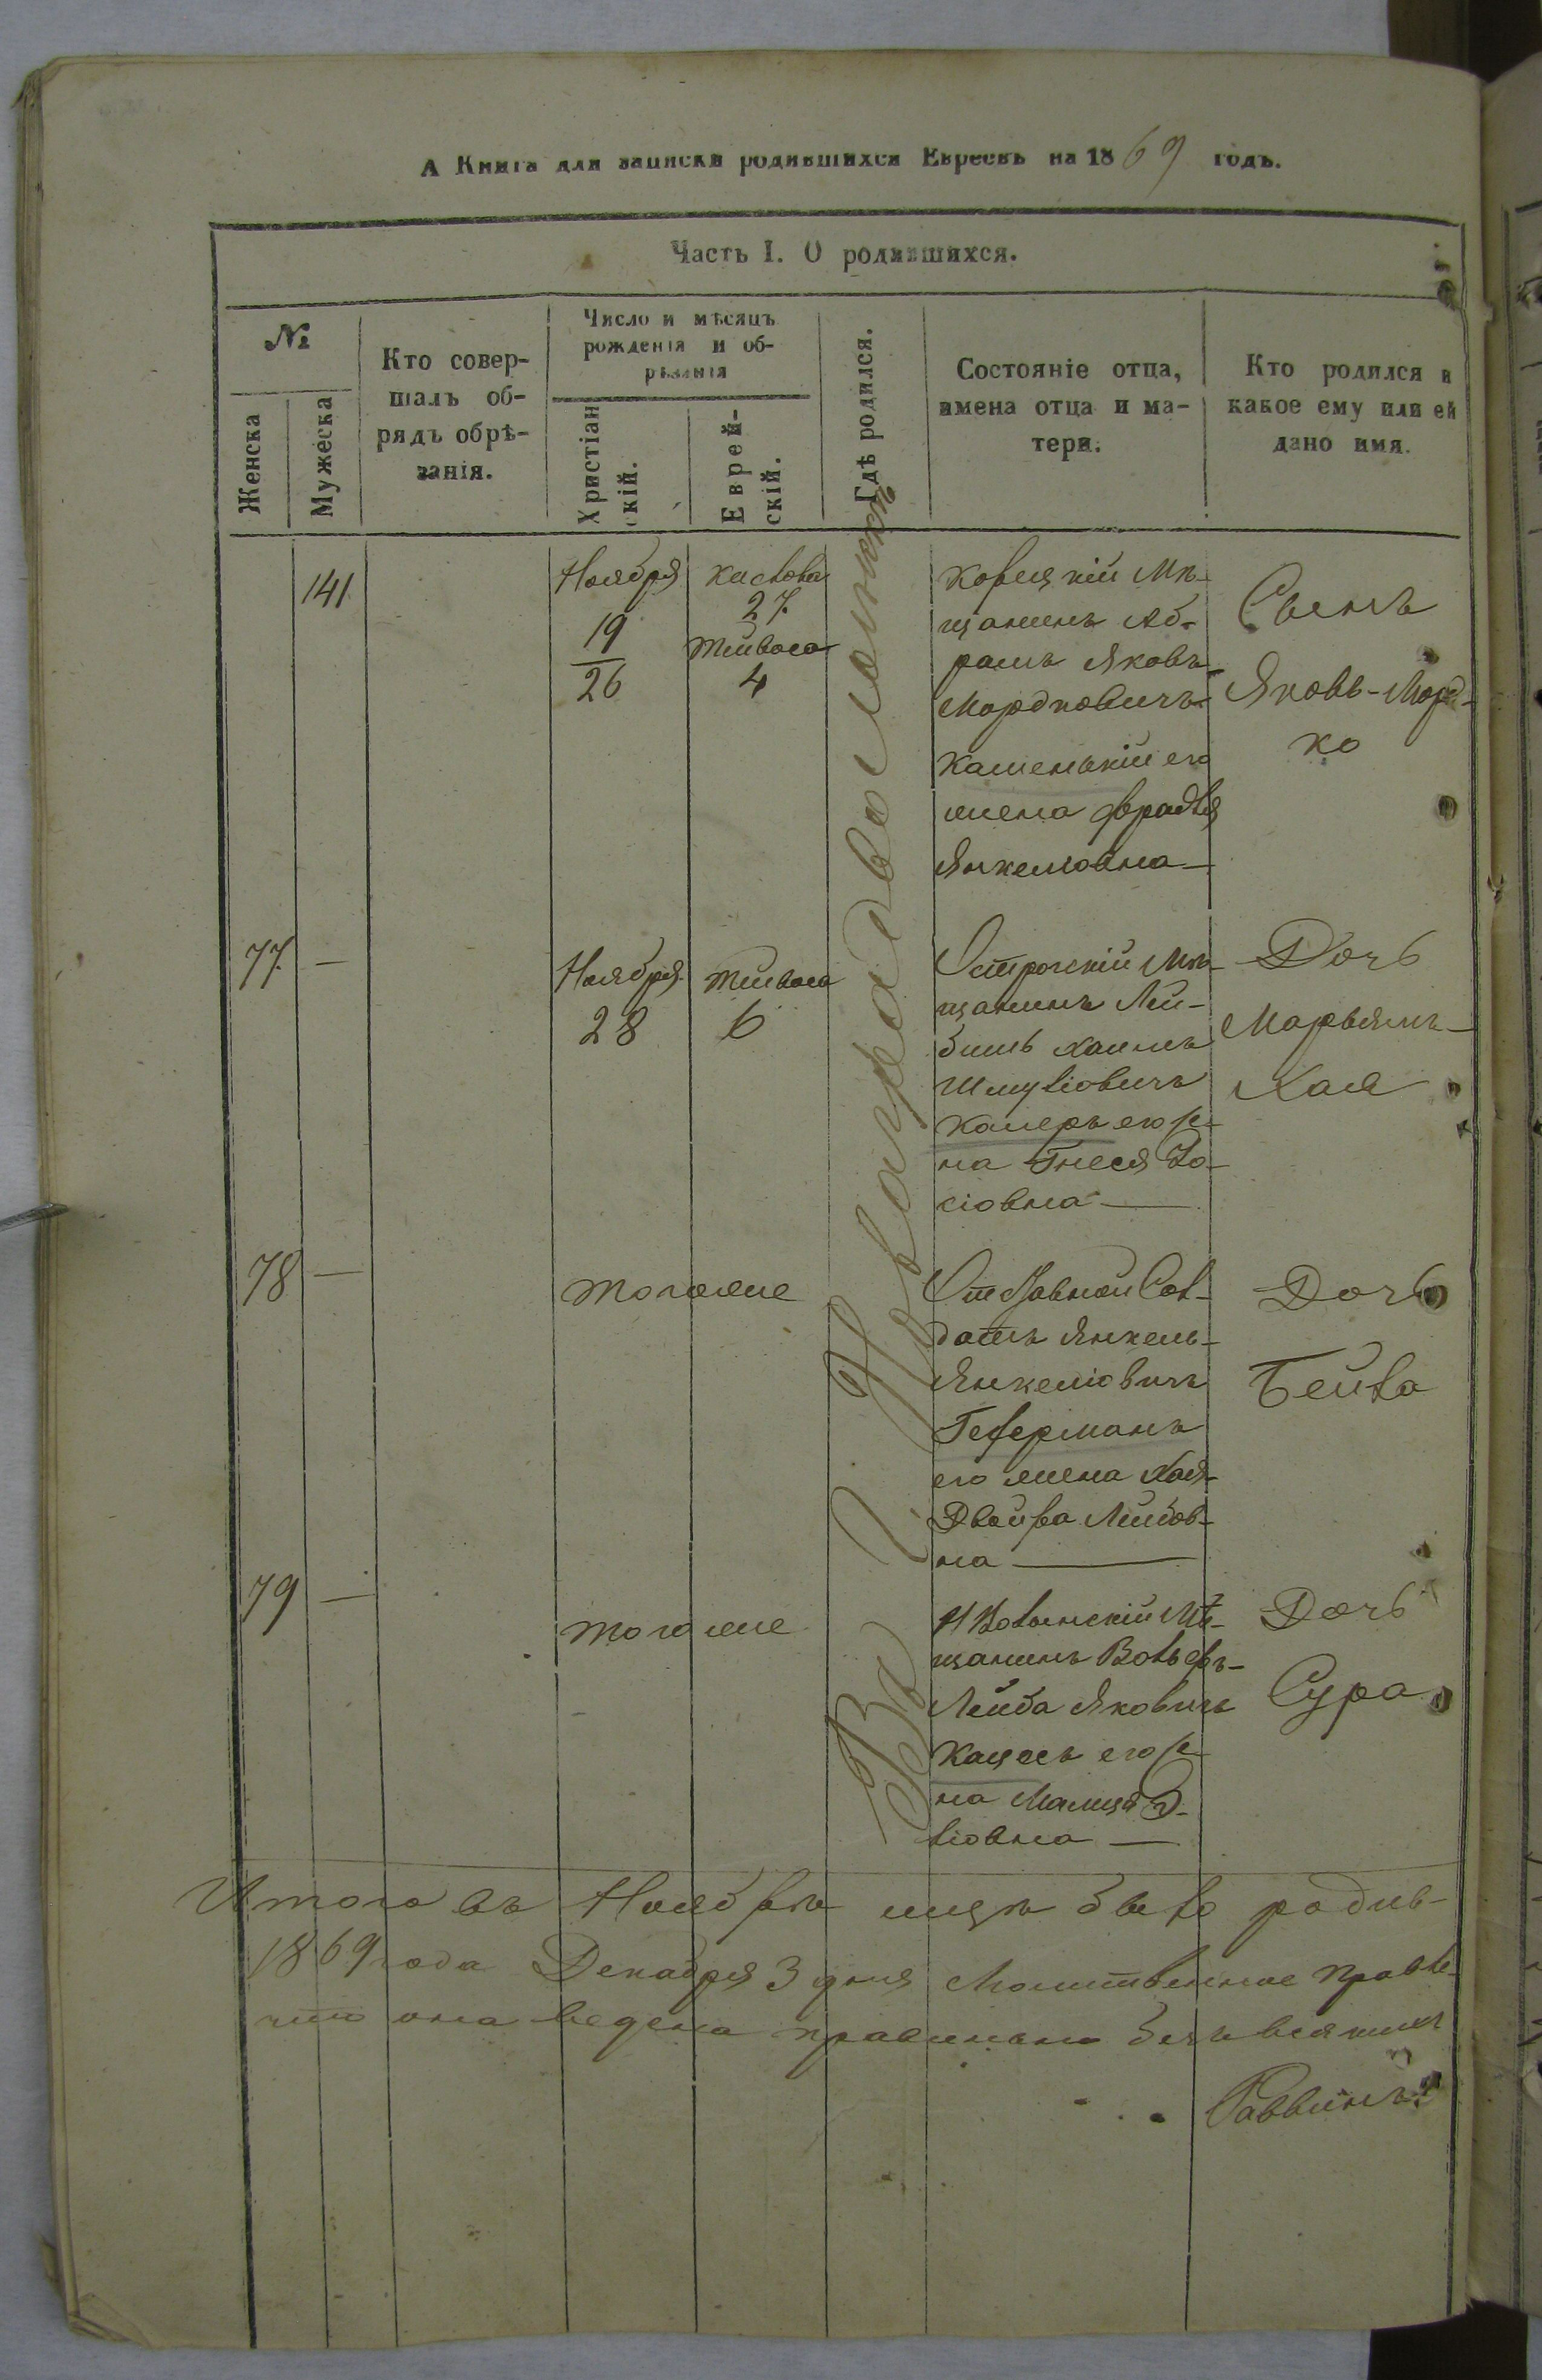 А Книга для записки родившихся Евреевъ на 1869 годъ.
Часть I. О родившихся.
№
Женска
Мужеска
Кто совер-
шалъ об-
рядъ обрѣ-
занія.
Число и мѣсяцъ
рожденія и об-
рѣзанія
Христіан
скій.
Еврей-
скій.
Гдѣ родился.
Состояніе отца,
имена отца и ма-
тери.
Кто родился и
какое ему или ей
дано имя.
141
Ноября
19
26
Кислова
27.
Тейваса
4
Корецкій Мѣ-
щанинъ Аб-
рамъ Яковъ-
Мордковичъ
Каменькій его
жена Фрадля
Янкелювна
Сынъ
Яковъ-Морд-
ко
77
—
Ноября
28
Тейваса
6
Острогскій Мѣ-
щанинъ Лей-
бишъ Хаимъ
Шмуліовичъ
Камеръ его же-
на Гнеся Іо-
сіовна
Дочь
Марьямъ-
Хая
78
—
Тогоже
Отставной Сол-
датъ Янкель-
Янкеліовичъ
Геферманъ
его жена Хая-
Двойра Лейбов-
на
Дочь
Бейла
79
—
Тогоже
Н Волынскій Мѣ-
щанинъ Вольфъ-
Лейба Яковичъ
Кацесъ его же-
на Маля Э-
ліовна
Дочь
Сура
Въ Г. Новоградволынскѣ
Итого въ Ноябрѣ мцѣ было родив-
1869 года Декабря 3 дня Молитвенное Правле-
что она ведена правильно безъ всякихъ
Раввинъ